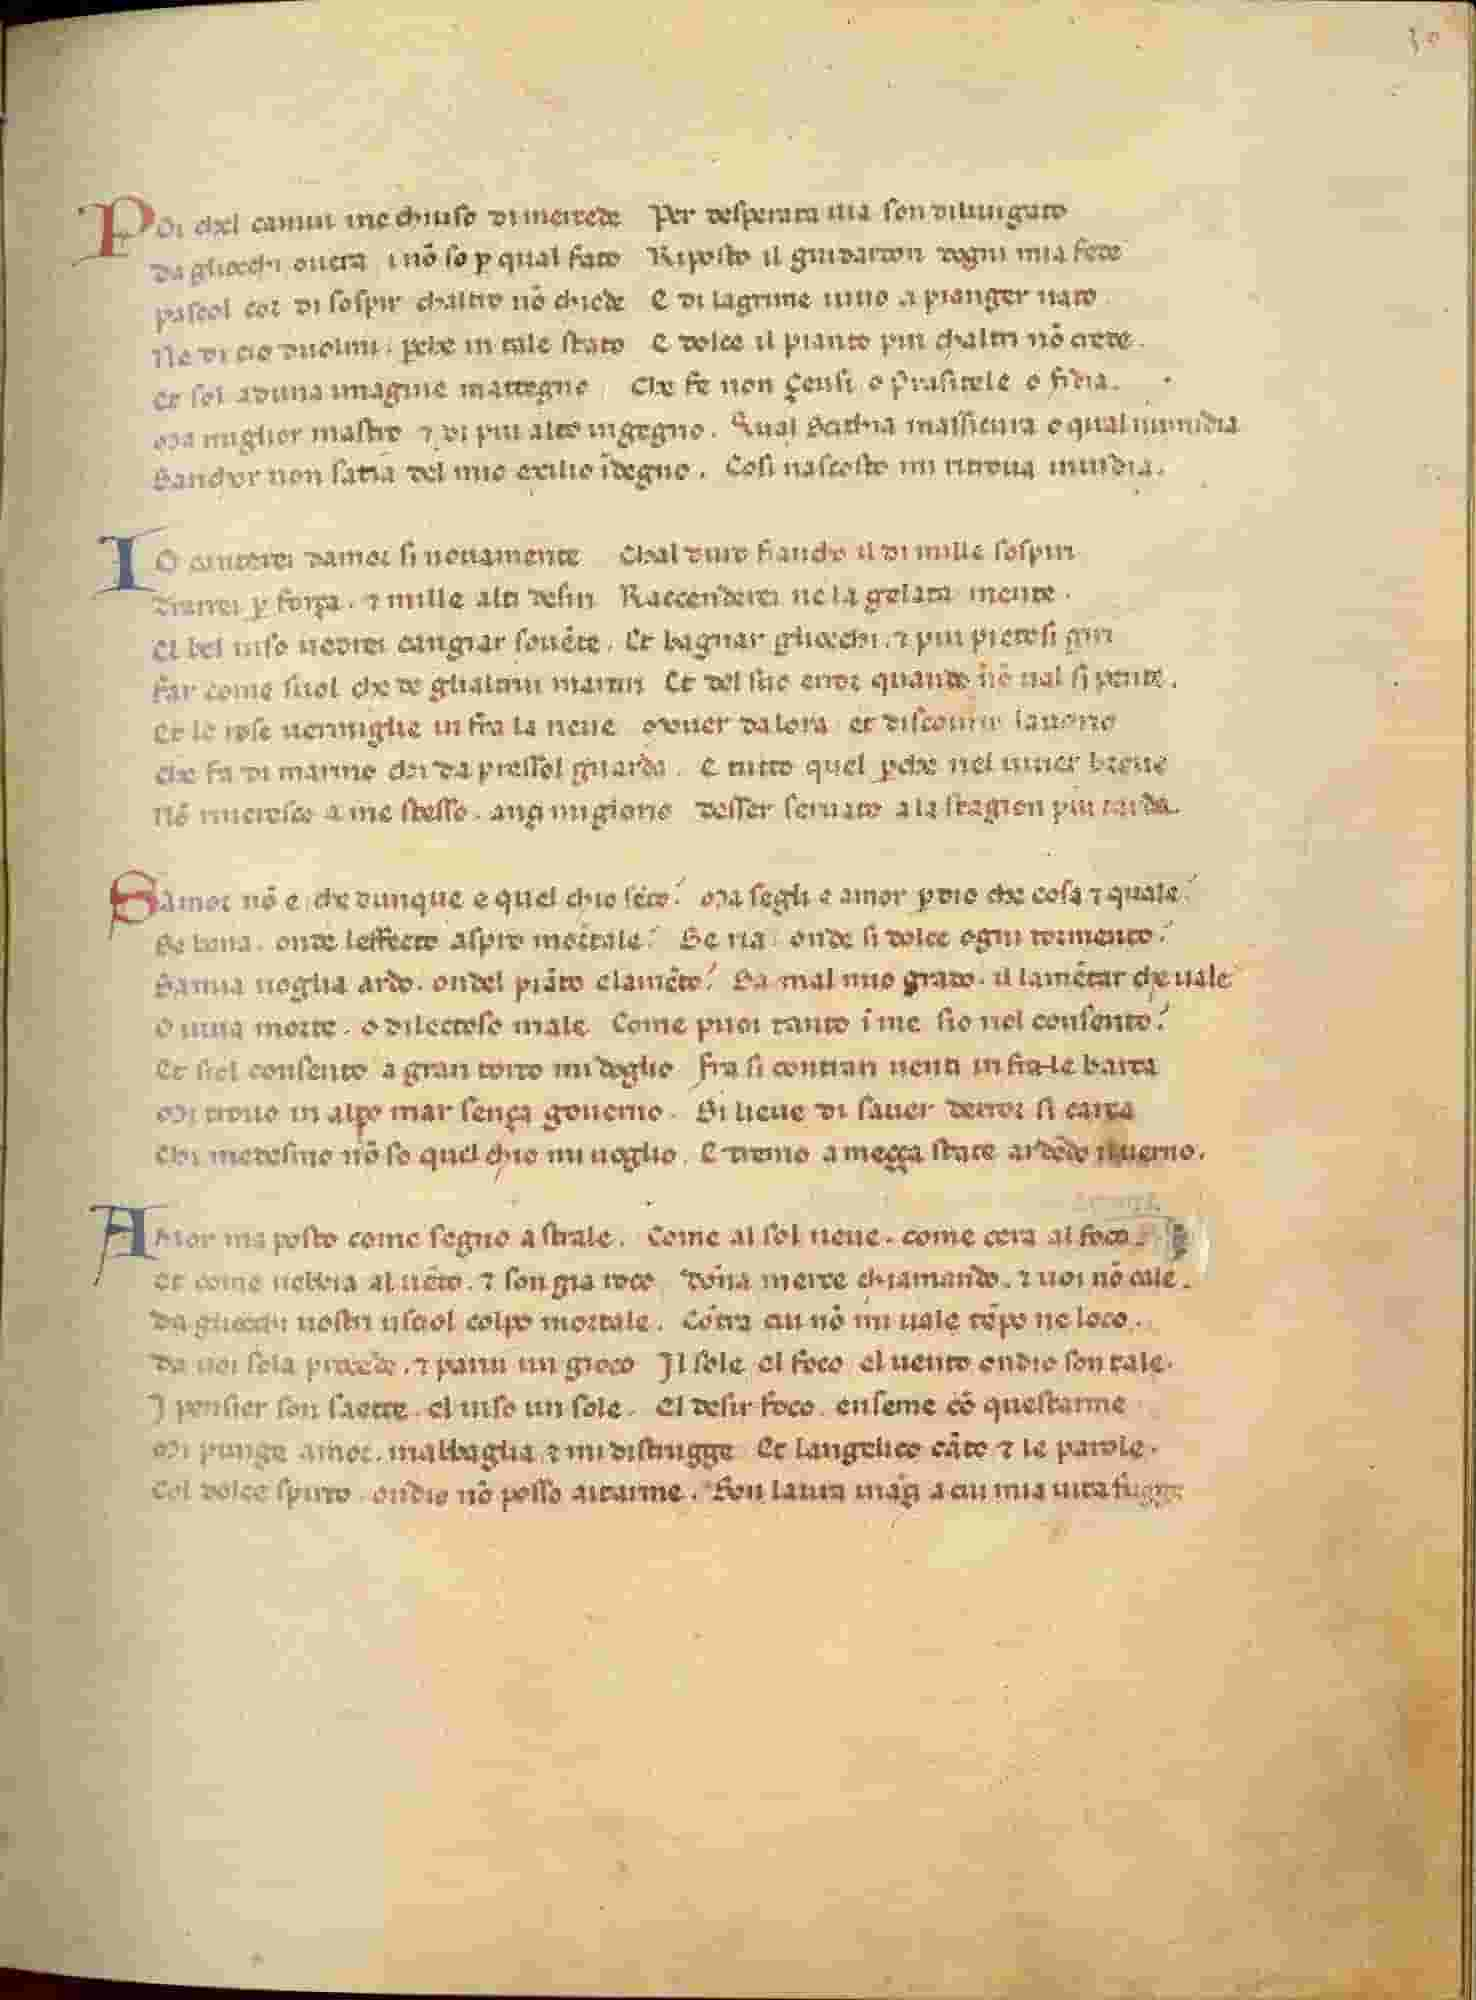 30
POi chel camin me chiuso di mercede Per desperata uia son dilungato
Da gliocchi ouera i nõ so ꝑ qual fato Riposto il guidardon dogni mia fede
Pascol cor di sospir chaltro nõ chiede E di lagrime uiuo a pianger nato
Ne di cio duolmi. perche in tale stato E dolce il pianto piu chaltri nõ crede.
Et sol aduna imagine mattegno Che fe non çeusi o prasitele o fidia.
Ma miglior mastro ⁊ di piu alto ingegno. Qual Scithia massicura o qual numidia
Sanchor non satia del mio exilio ĩdegno. Cosi nascosto mi ritroua inuidia.
IO canterei damor si nouamente Chal duro fiancho il di mille sospiri
Trarrei ꝑ força. ⁊ mille alti desiri Raccenderei ne la gelata mente.
El bel uiso uedrei cangiar souẽte. Et bagnar gliocchi. ⁊ piu pietosi giri
Far come suol che de glialtrui martiri Et del suo error quando nõ ual si pente.
Et le rose uermiglie in fra la neue Mouer dalora et discourir lauorio
Che fa di marmo chi da pressol guarda. E tutto quel ꝑche nel uiuer breue
Nõ rincresco a me stesso. ançi mi glorio Desser seruato a la stagion piu tarda.
SAmor nõ e che dunque e quel chio sẽto? Ma segli e amor ꝑ dio che cosa ⁊ quale?
Se bona. onde leffecto aspro mortale? Se ria. onde si dolce ogni tormento?
Samia uoglia ardo. ondel piãto elamẽto? Sa mal mio grato. il lamẽtar che uale
O uiua morte. o dilectoso male Come puoi tanto ĩ me sio nol consento?
Et sio l consento a gran torto mi doglio Fra si contrari uenti in frale barca
Mi trouo in alto mar sença gouerno. Si lieue di sauer derror si carca
Chi medesmo nõ so quel chio mi uoglio. E tremo a meçça state ardẽdo il uerno.
AMor ma posto come segno a strale. Come al sol neue. come cera al foco.
Et come nebbia al uẽto. ⁊ son gia roco Dõna merce chiamando. ⁊ uoi nõ cale.
Da gliocchi uostri uscio l colpo mortale. Cõtra cui nõ mi uale tẽpo ne loco.
Da uoi sola procede. ⁊ parui un gioco Il sole el foco el uento ondio son tale.
I pensier son saette. el uiso un sole. El desir foco. enseme cõ questarme
Mi punge amor. mabbaglia ⁊ mi distrugge Et langelico cãto ⁊ le parole.
Col dolce spirto. ondio nõ posso aitarme. Son laura inãçi a cui mia uita fugge